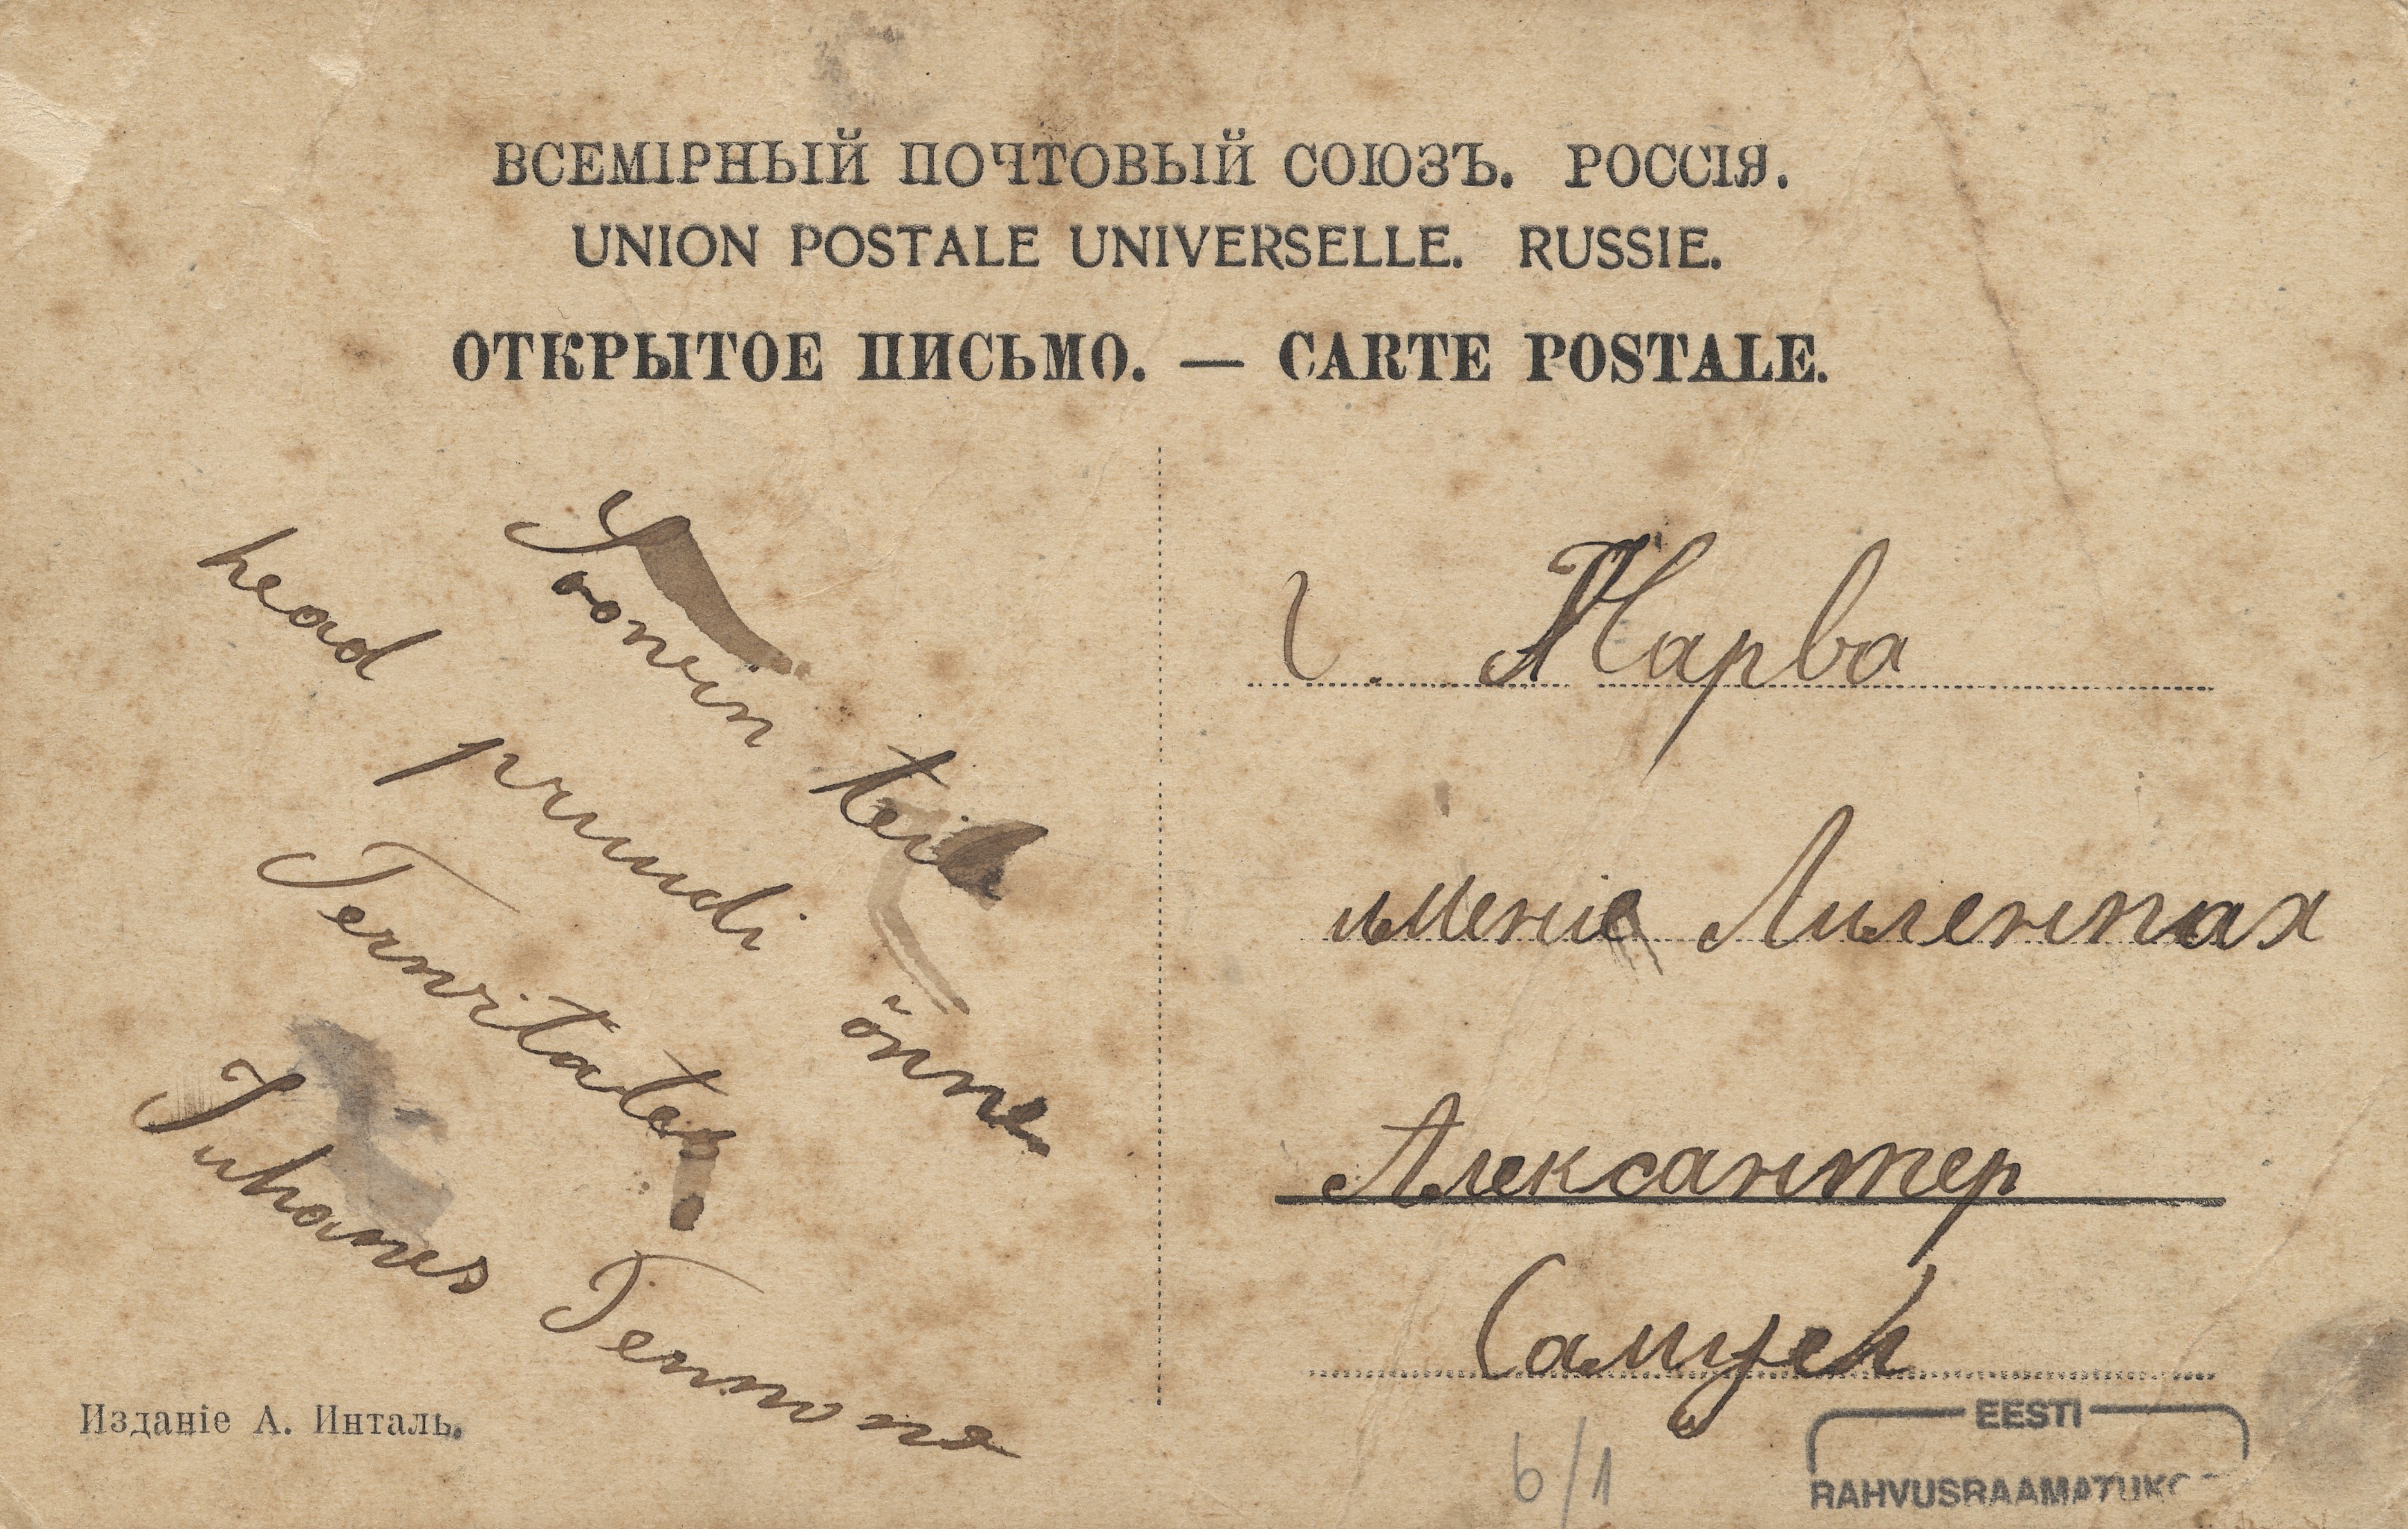 ВСЕМІРНЫЙ ПОЧТОВЫЙ СОЮЗЪ. РОССІЯ.
UNION POSTALE UNIVERSELLE. RUSSIE.
ОТКРЫТОЕ ПИСЬМО. — CARTE POSTALE.
Soovin teile
head pruudi õnne
Tervitates!
Juhanes
г. Нарва
имение Лиленпах
Александер
Самуел
Изданіе А. Инталь.
6/1
EESTI